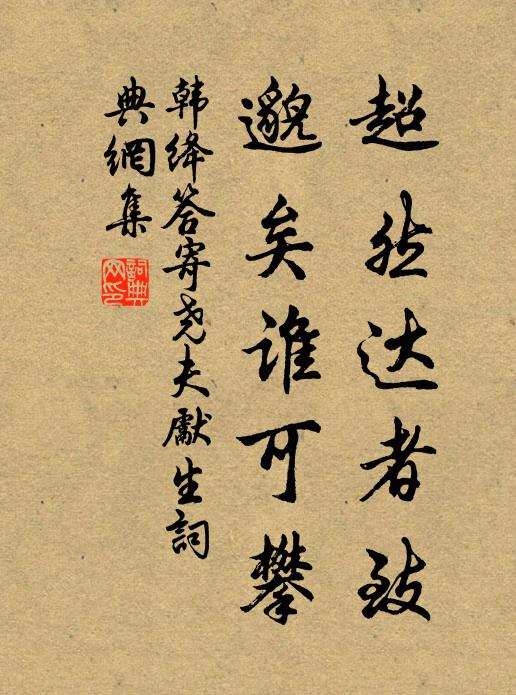 超然达者致
邈矣谁可攀
韩绛答寄尧夫獻生詞
典網集
詞典
网印